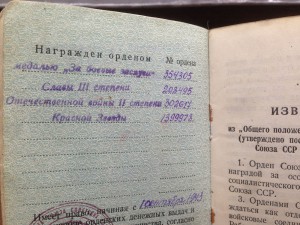 Награжден орденом
№ ордена
медалью „За боевые заслуги"
354305
Славы III степени
208495
Отечественной войны II степени
302617
Красной Звезды
1599978
Имеет право начиная с
1943
орденских денежных выдач и
ИЗВ
из „Общего положения
(утверждено пос
Союза ССР
1. Орден Союз
наградой за осо
социалистического
Союза ССР.
3. Орденами С
ждаться как отде
войсковые соеди